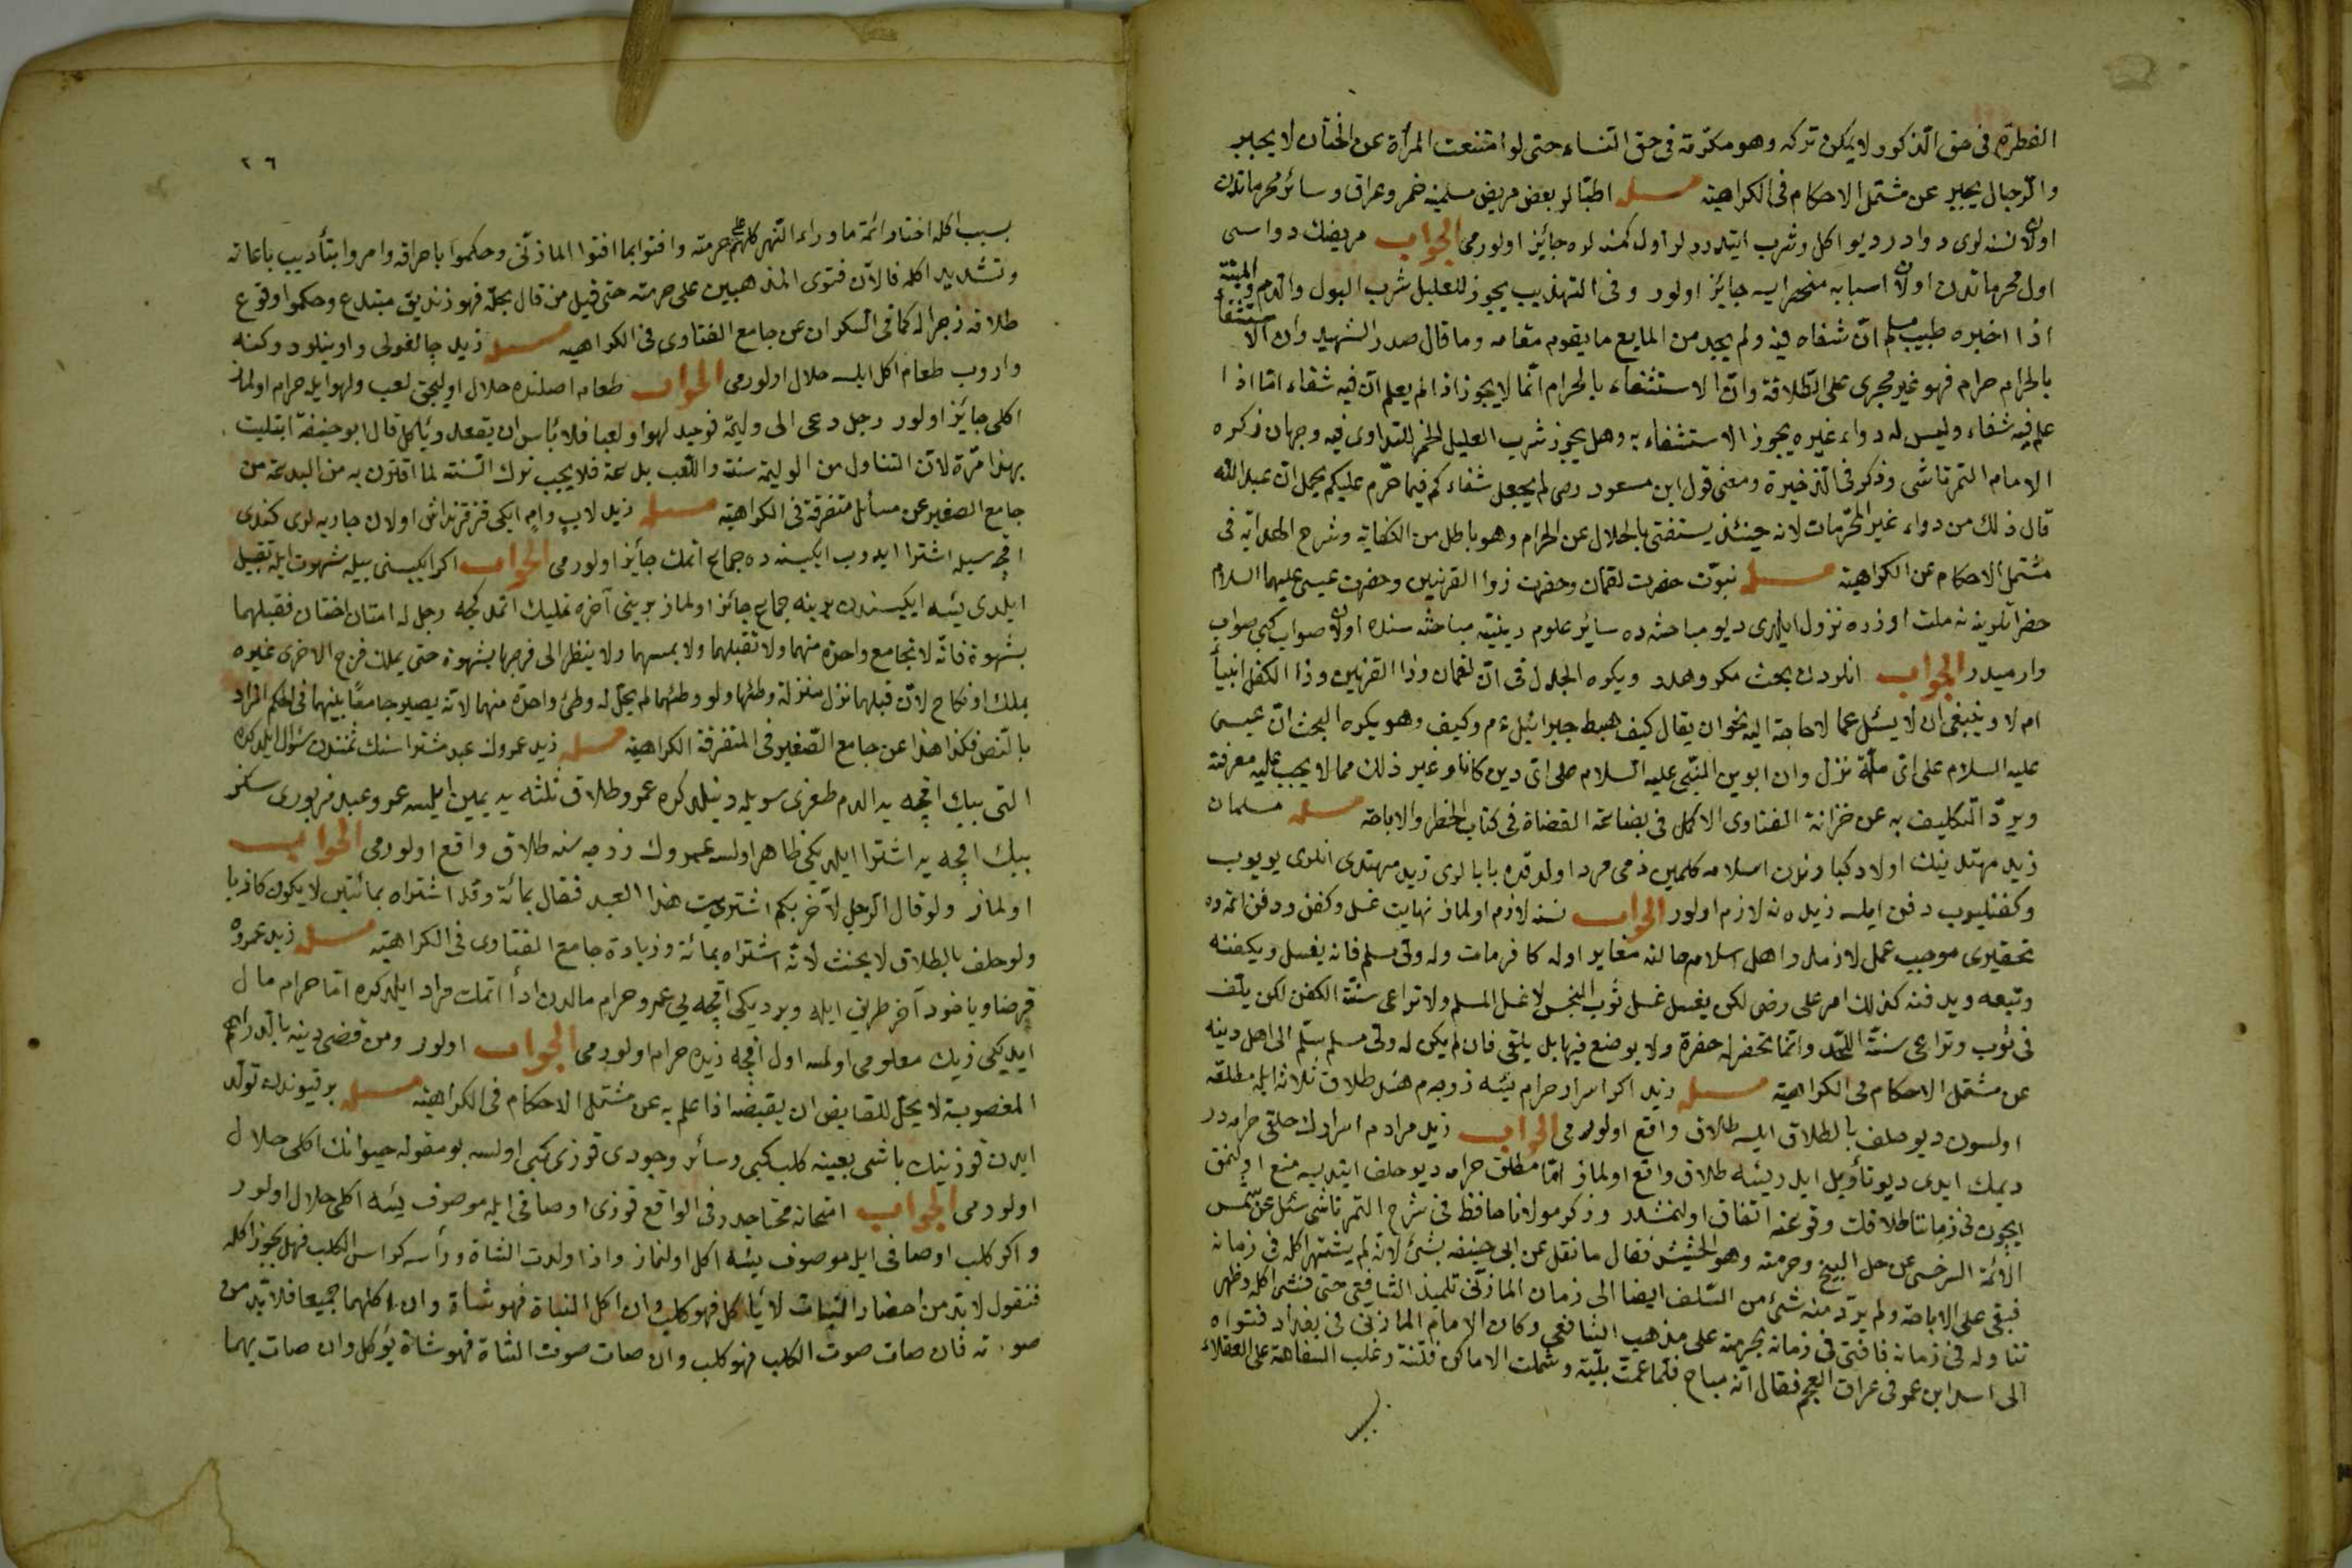 الفطرة فى حق الذكور لا يمكن تركه وهو مكرمة فى حق النساء حتى لو امتنعت المرأة عن الختان لا يجبر
والرجال يجبر عن مشتمل الاحكام فى الكراهية مسئله اطبا لر بعض مريض مسلمينه خمر وعراق وسائر محرماتدن
اولان نسنه لرى دوادر ديو اكل وشرب ايتدررلر اول كمسنه لره جائز اولورمى الجواب مريضك دواسى
اول محرماتدن اولان اسبابه منحصر ايسه جايز اولور وفى التهذيب يجوز للعليل شرب البول والدم والميتة
اذا اخبره طبيب مسلم ان شفاه فيه ولم يجد من المايع ما يقوم مقامه وما قال صدر الشهيد وان الاستشفاء
بالحرام حرام فهو غير مجرى على اطلاقه وان الاستشفاء بالحرام انما لا يجوز اذا لم يعلم ان فيه شفاء اما اذا
علم فيه شفاء وليس له دواء غيره يجوز الاستشفاء به وهل يجوز شرب العليل الخمر للتداوى فيه وجهان ذكره
الامام التمرتاشى وذكر فى الذخيرة ومعنى قول ابن مسعود رضى لم يجعل شفاءكم فيما حرم عليكم يحمل ان عبد الله
قال ذلك من دواء غير المحرمات لانه حينئذ يستغنى بالحلال عن الحرام وهو باطل من الكفاية وشرح الهداية فى
مشتمل الاحكام عن الكراهية مسئله نبوت حضرت لقمان وحضرت ذوا القرنين وحضرت عيسى عليهما السلام
حضرتلرينه نه ملت اوزره نزول ايلدى ديو مباحثه ده سائر علوم دينيه مباحثه سنده اولان صواب كبى صواب
وارميدر الجواب انلردن بحث مكروهدر ويكره الجدل فى ان لقمان وذا القرنين وذا الكفل انبيأ
ام لا وينبغى ان لا يسئل عما لا حاجة اليه نحو ان يقال كيف هبط جبرائيل ءم وكيف وهو يكره البحث ان عيسى
عليه السلام على اى ملة نزل وان ابوين النبى عليه السلام على اى دين كانا وغير ذلك مما لا يجب عليه معرفته
ويرد التكليف به عن خزانة الفتاوى الاكمل فى بضاعة القضاة فى كتاب الحظر والاباحة مسئله مسلمان
زيد مهتدينك اولاد كبارندن اسلامه كلمين ذمى مرد اولدقده بابالرى زيد مهتدى انلرى يويوب
وكفنليوب دفن ايلسه زيده نه لازم اولور الجواب نسنه لازم اولماز نهايت غسل وكفن ودفن اتمه ده
تحقيرى موجب عمل لازمدر اهل اسلام حالنه مغاير اوله كافر مات وله ولى مسلم فانه يغسل ويكفنه
وتبعه ويدفنه كذلك امر على رضى لكن يغسل غسل ثوب النجس لا غسل المسلم ولا تراعى سنة الكفن لكن يلف
فى ثوب وتراعى سنة اللحد وانما تحفر له حفرة ولا يوضع فيها بل يلقى فان لم يكن له ولى مسلم يسلم الى اهل دينه
عن مشتمل الاحكام فى الكراهية مسئله زيد اكر اسرار حرام يئسه زوجه م هند طلاق ثلاثه ايله مطلقه
اولسون ديو حلف بالطلاق ايلسه طلاق واقع اولورمى الجواب زيد مرادم اسرارك حلقى حرامدر
ديمك ايدى ديو تأويل ايلر ايسه طلاق واقع اولماز اما مطلق حرام ديو حلف ايتديسه منع اولنمق
ايچون فى زماننا طلاقك وقوعنه اتفاق اولنمشدر وذكر مولانا حافظ فى شرح التمرتاشى سئل عن شمس
الائمة السرخسى عن حل البنج وحرمته وهو الحشيش فقال ما نقل عن ابى حنيفه بشئ لانه لم يشتهر اكله فى زمانه
فبقى على الاباحة ولم يرد منه شئ من السلف ايضا الى زمان المازنى تلميذ الشافعى حتى فشى اكله وظهر
تناوله فى زمانه فافتى فى زمانه بحرمته على مذهب الشافعى وكان الامام المازنى فى بغداد فتواه
الى اسد ابن عمر فى عراق العجم فقال انه مباح فلما عمت بليته وشملت الاماكن فتنته وغلب السفاهة على العقلاء
بسبب
٢٦
بسبب اكله اختار ائمة ماوراء النهر كلهم على حرمته وافتوا بما افتوا المازنى وحكموا باحراقه وامروا بتأديب باعاته
وتشديد اكله فالان فتوى المذهبين على حرمته حتى قيل من قال بحله فهو زنديق مبتدع وحكموا وقوع
طلاقه زجرا له كما فى السكران عن جامع الفتاوى فى الكراهية مسئله زيد چالغولى واوينلو دوكنه
واروب طعام اكل ايلسه حلال اولورمى الجواب طعام اصلنده حلال اوليجق لعب ولهو ايله حرام اولماز
اكلى جايز اولور رجل دعى الى وليمة فوجد لهوا ولعبا فلا بأس ان يقعد ويأكل قال ابو حنيفة ابتليت
بهذا مرة لان التناول من الوليمة سنة واللعب بدعة فلا يجب ترك السنة لما اقترن به من البدعة من
جامع الصغير عن مسائل متفرقة فى الكراهية مسئله زيد لاب وام ايكى قز قرنداش اولان جاريه لرى كندى
اقچه سيله اشترا ايدوب ايكيسنده جماع اتمك جائز اولورمى الجواب اكر ايكيسنى بيله شهوت ايله تقبيل
ايلدى يئسه ايكيسندن برينه جماع جائز اولماز برينى آخره تمليك اتمدكجه رجل له امتان اختان فقبلهما
بشهوة فانه لا يجامع واحدة منهما ولا تقبلهما ولا يمسهما ولا ينظر الى فرجها بشهوة حتى يملك فرج الاخرى غيره
بملك او نكاح لان قبلهما نزل منزلة وطئها ولو وطئهما لم يحل له وطئ واحدة منهما لانه يصير جامعا بينهما فى الحكم المراد
بالنص فكذا هذا عن جامع الصغير فى المتفرقة الكراهية مسئله زيد عمروك عبد مشتراسنك ثمنندن سؤال ايلدكده
التى بيك اقچه يه الدم طغرى سويله دينلدكده عمرو طلاق ثلثه يه يمين ايلسه عمرو عبد مزبورى سكز
بيك اقچه يه اشترا ايلديكى ظاهر اولسه عمروك زوجه سنه طلاق واقع اولورمى الجواب
اولماز ولو قال الرجل لآخر بكم اشتريت هذا العبد فقال بمائة وقد اشتراه بمائتين لا يكون كاذبا
ولو حلف بالطلاق لا يحنث لانه اشتراه بمائة وزيادة جامع الفتاوى فى الكراهية مسئله زيد عمروه
قرضا وياخود آخر طريق ايله ويرديكى اقچه يى عمرو حرام مالدن ادأ اتمك مراد ايلدكده اتا حرام مال
ايديكى زيك معلومى اولسه اول اقچه زيده حرام اولورمى الجواب اولور ومن قضى دينه بالدراهم
المغصوبة لا يحل للقابض ان يقبضه اذا علم به عن مشتمل الاحكام فى الكراهية مسئله بر قيوندن تولد
ايدن قوزينك باشى بعينه كلب كبى وسائر وجودى قوزى كبى اولسه بو مقوله حيوانك اكلى حلال
اولورمى الجواب امتحانه محتاجدر فى الواقع قوزى اوصافى ايله موصوف يئسه اكلى حلال اولور
واكر كلب اوصافى ايله موصوف يئسه اكل اولنماز واذا ولدت الشاة ورأسه كرأس الكلب فهل يجوز اكله
فنقول لا بد من احضار النبات لا يأكل فهو كلب وان اكل النبات فهو شاة وان اكلهما جميعا فلا بد من
صوته فان صات صوت الكلب فهو كلب وان صات صوت الشاة فهو شاة يؤكل وان صات بهما